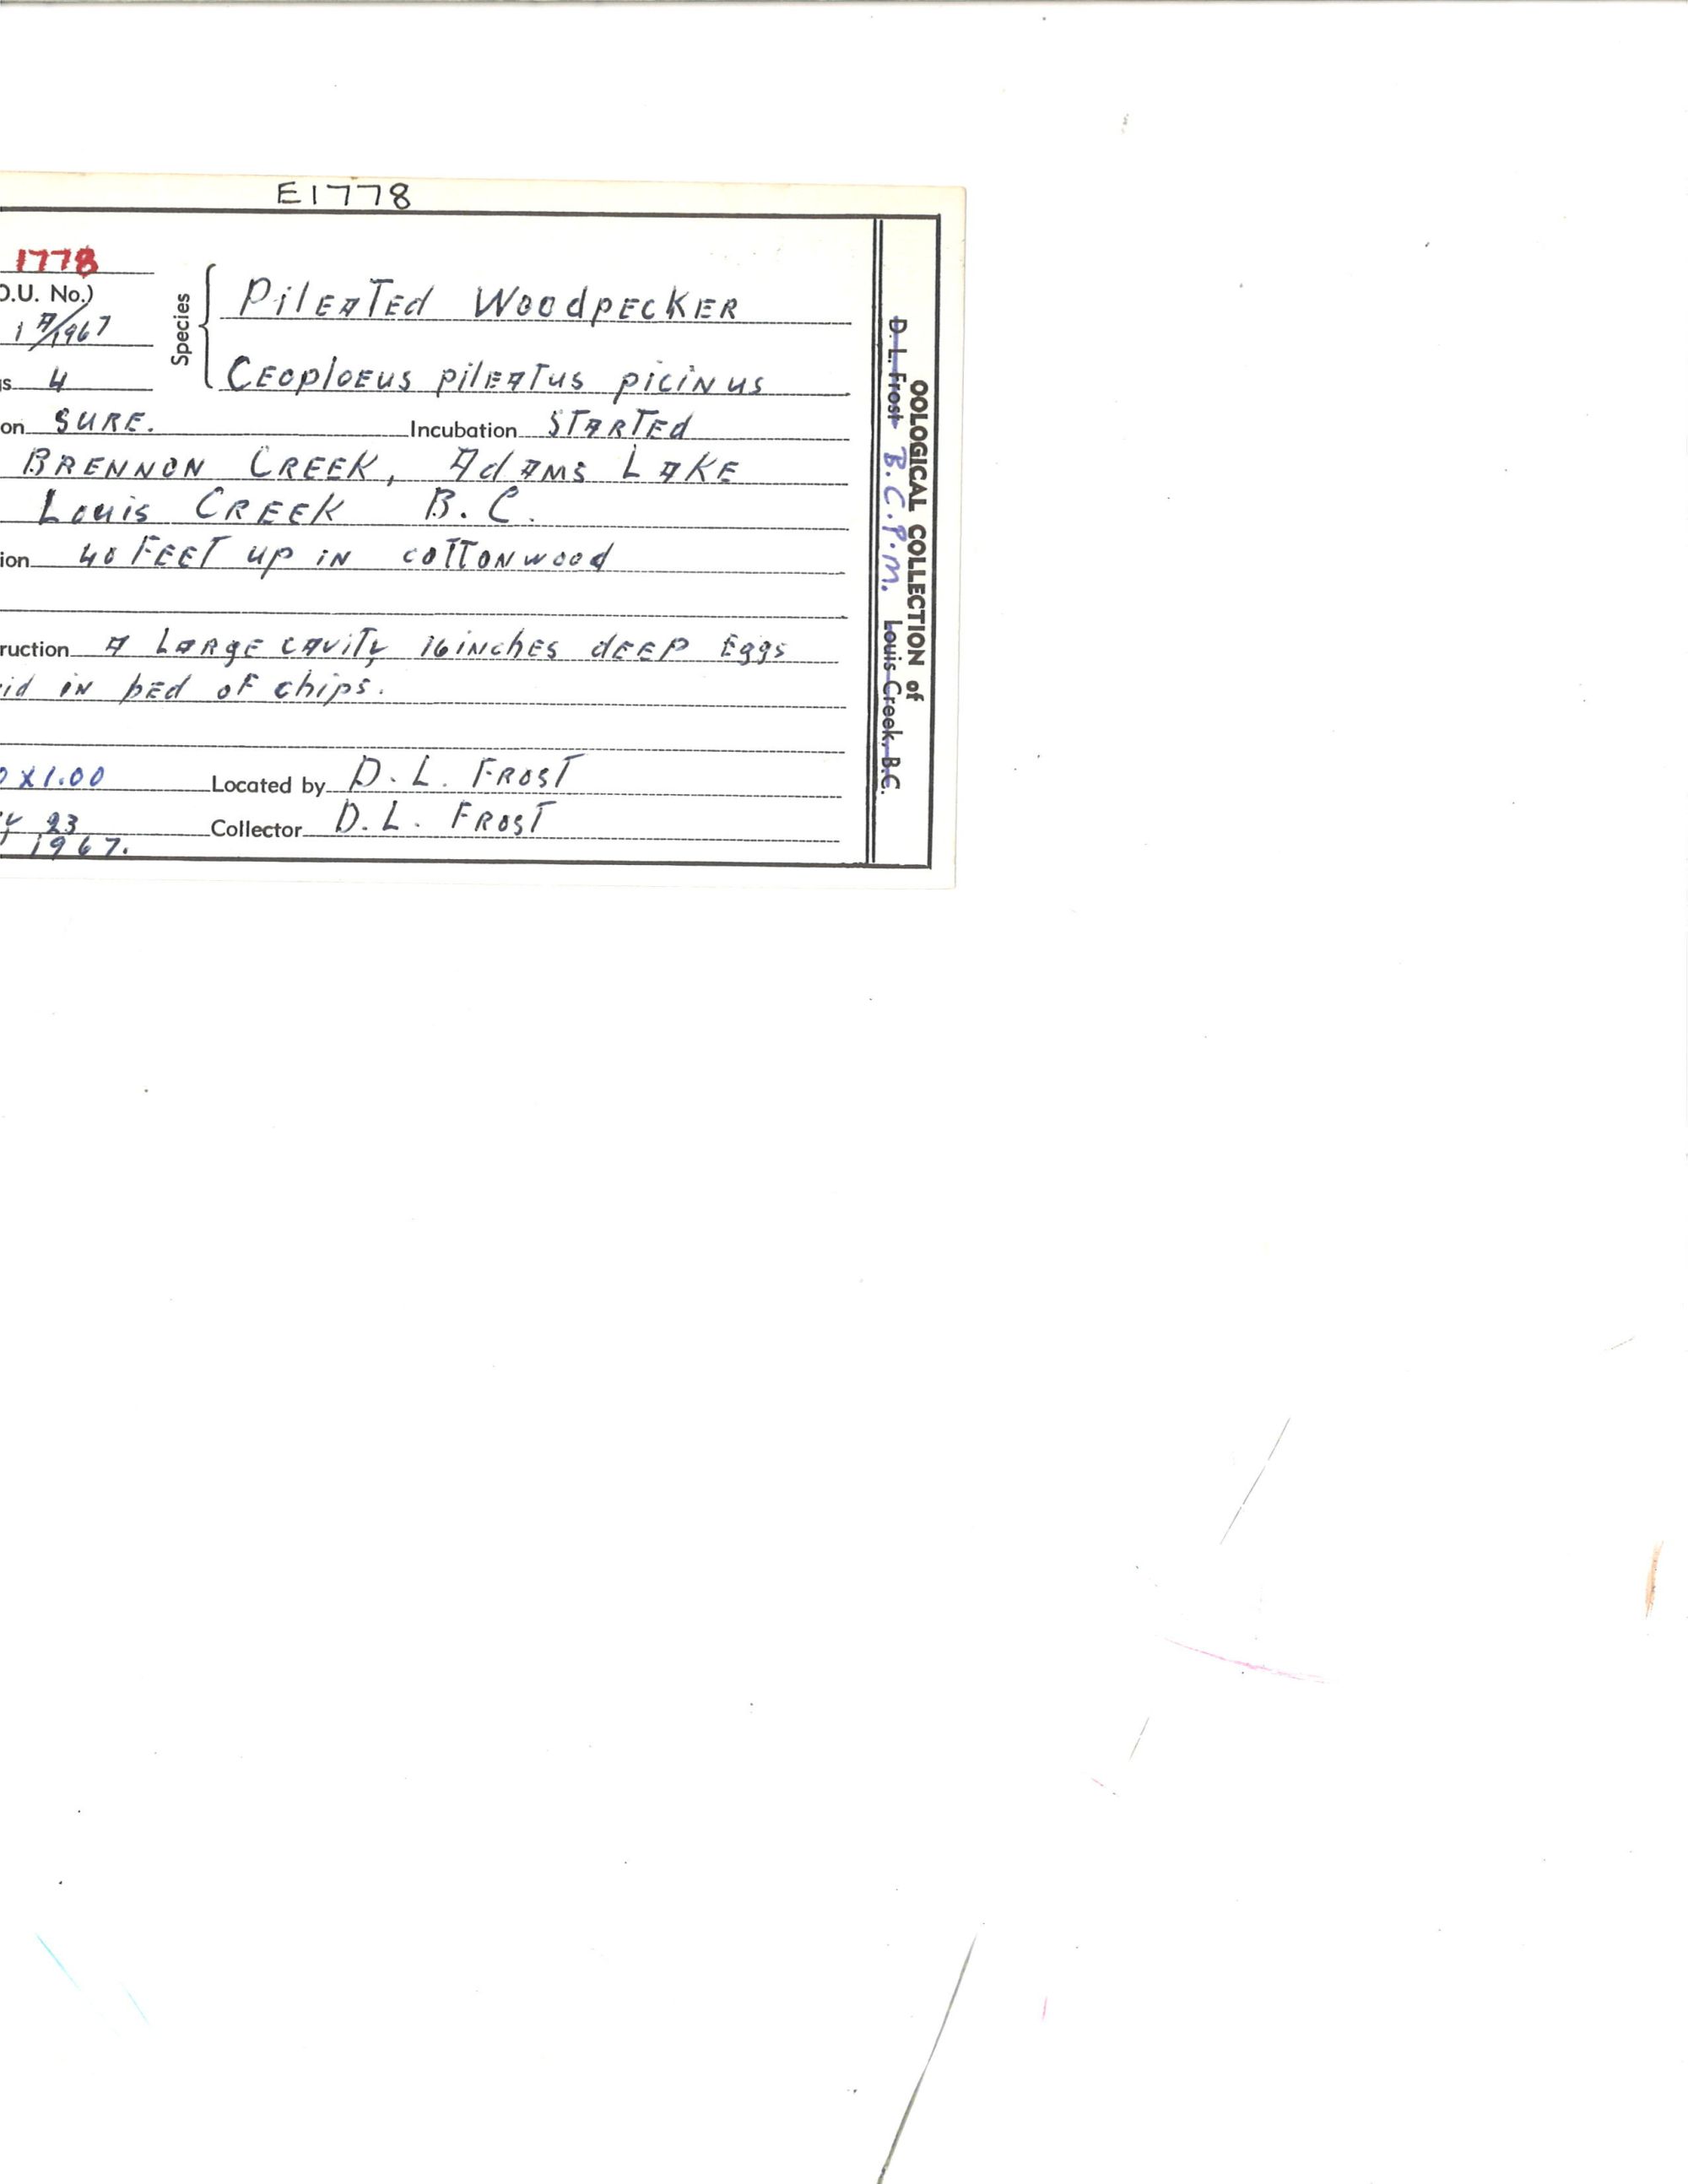 E1778
1778
O.U. No.)
1 A/1967
Species
PilEATEd WoodpECKER
s 4
CEOplOEUS pilEATUS piciNus
on SURE. Incubation STARTEd
BRENNON CREEK, AdAMS LAKE
Louis CREEK B.C.
ion 40 FEET up iN coTTONwood
ruction A LARgE cAviTy 16 iNchES dEEP Eggs
id iN bEd oF chips.
X1.00 Located by D. L. FROST
23 Collector D. L. FROST
1967.
OOLOGICAL COLLECTION of
D. L. Frost B.C.P.M. Louis Creek, B.C.